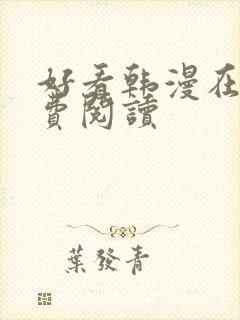 好看韩漫在
費閱讀
葉發青